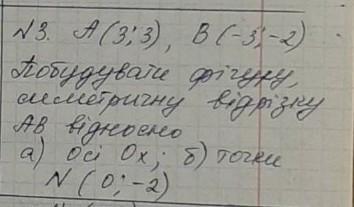 №3. А(3;3), В(-3;-2)
Побудувати фігуру,
симетричну відрізку
АВ відносно
а) осі Ох; б) точки
N(0;-2)